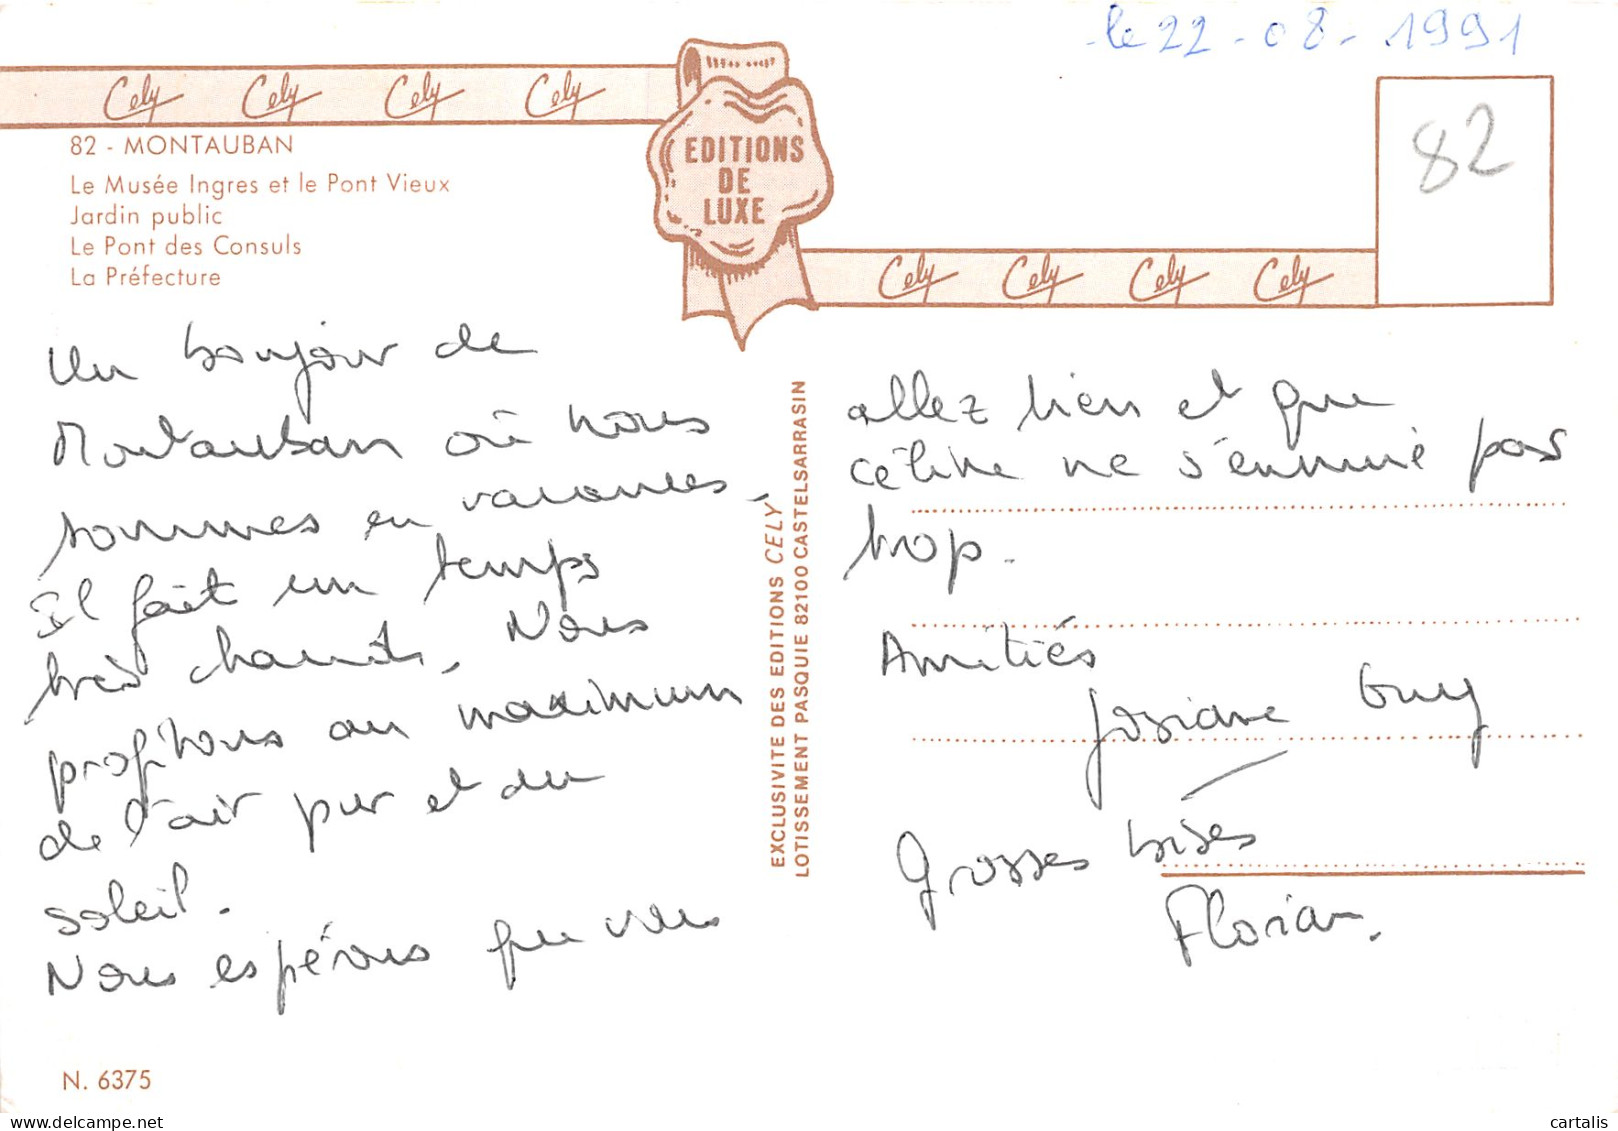 le 22-08-1991
Cely Cely Cely Cely
82 - MONTAUBAN
Le Musée Ingres et le Pont Vieux
Jardin public
Le Pont des Consuls
La Préfecture
EDITIONS
DE
LUXE
82
Cely Cely Cely Cely
Un bonjour de
Montauban où nous
sommes en vacances.
Il fait un temps
très chauds. Nous
profitons au maximum
de l'air pur et du
soleil.
Nous espérons que vous
N. 6375
EXCLUSIVITE DES EDITIONS CELY
LOTISSEMENT PASQUIE 82100 CASTELSARRASIN
allez bien et que
céline ne s'ennuie pas
trop.
Amitiés
Josiane Guy
Grosses bises
Florian.
© cartalis
delcampe.net